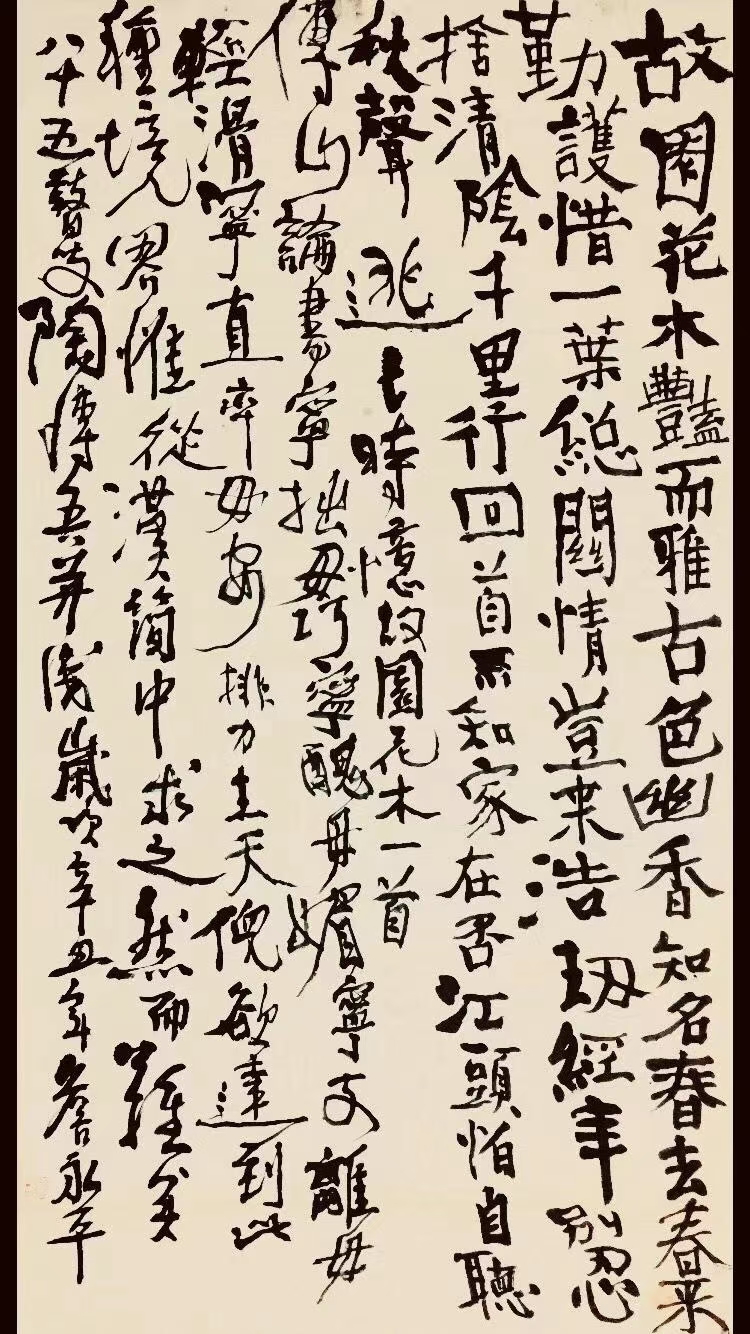 故園花木豔而雅古色幽香知名春去春来
勤護惜一葉總關情豈来浩劫經年別忍
捨清陰千里行回首不知家在否江頭怕自聽
秋聲 逃亡時憶故園花木一首
傅山論書寧拙毋巧寧醜毋媚寧支離毋
輕滑寧直率毋安排力主天倪欲達到此
種境界惟從漢簡中求之然而難矣
八十五瞽叟陶博吾並識歲次辛丑年詹永平